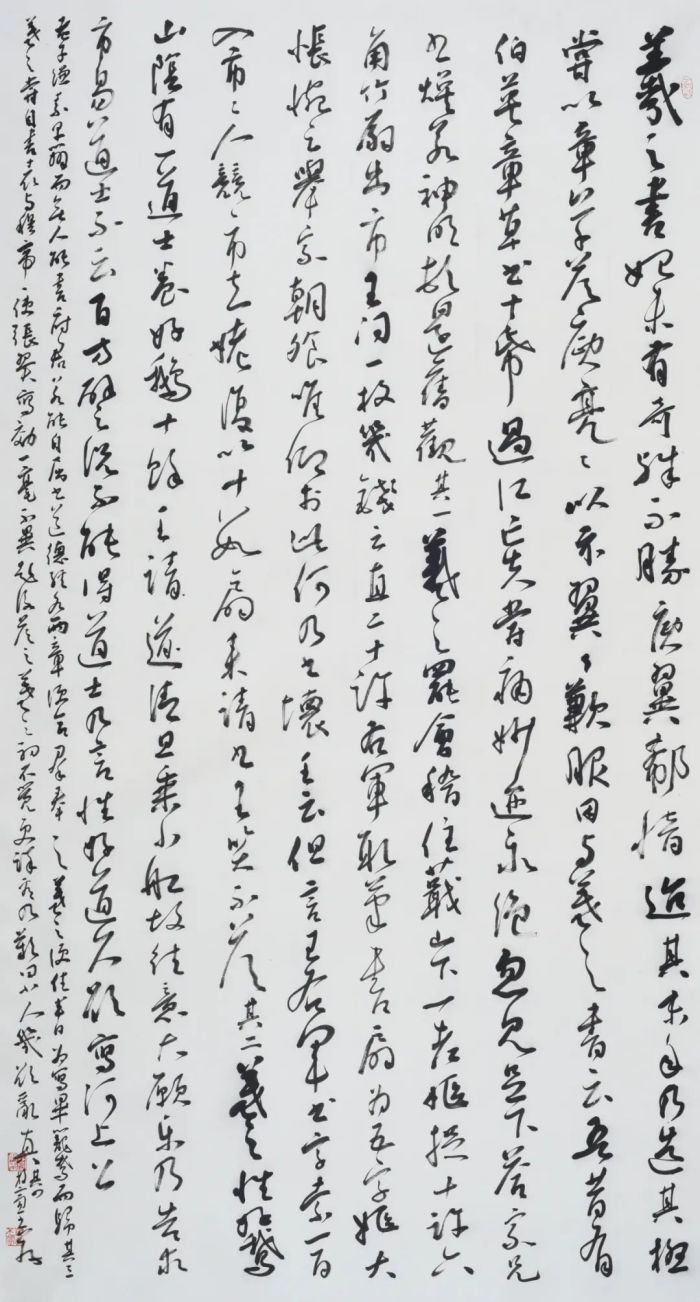 羲之書始未有奇殊不勝庾翼郗愔迨其末年乃造其極
嘗以章草答庾亮亮以示翼翼歎服因與羲之書云吾昔有
伯英章草書十紙過江亡失嘗痛妙迹永絕忽見足下答家兄
書煥若神明頓還舊觀其一羲之罷會稽住蕺山下一老嫗捉十許六
角竹扇出市王問一枚幾錢云直二十許右軍取筆書扇為五字嫗大
悵惋云舉家朝飧唯仰於此何乃書壞王云但言王右軍書字索一百
入市市人競市去姥復以十數扇來請書王笑不答其二羲之性好鵝
山陰有一道士養好鵝十餘王請清旦乘小船故往意大願樂乃告求
市易道士不云百方譬說不能得道士乃言性好道久欲寫河上公
老子縑素早辦而無人能書府君若能自屈書道德經各兩章便合羣奉之羲之便住半日為寫畢籠鵝而歸其三
羲之嘗自書表與穆帝帝使張翼寫效一毫不異題後答之羲之初不覺更詳看乃歎曰小人幾欲亂真其四